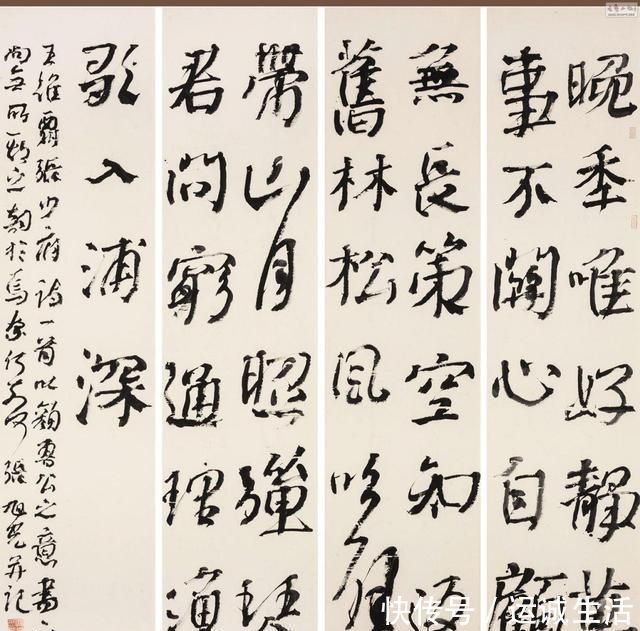 晚年唯好靜萬
事不關心自顧
無長策空知返
舊林松風吹解
帶山月照彈琴
君問窮通理漁
歌入浦深
王維酬張少府詩一首以
公之意書
張旭光并記
快传号 / 运诚生活